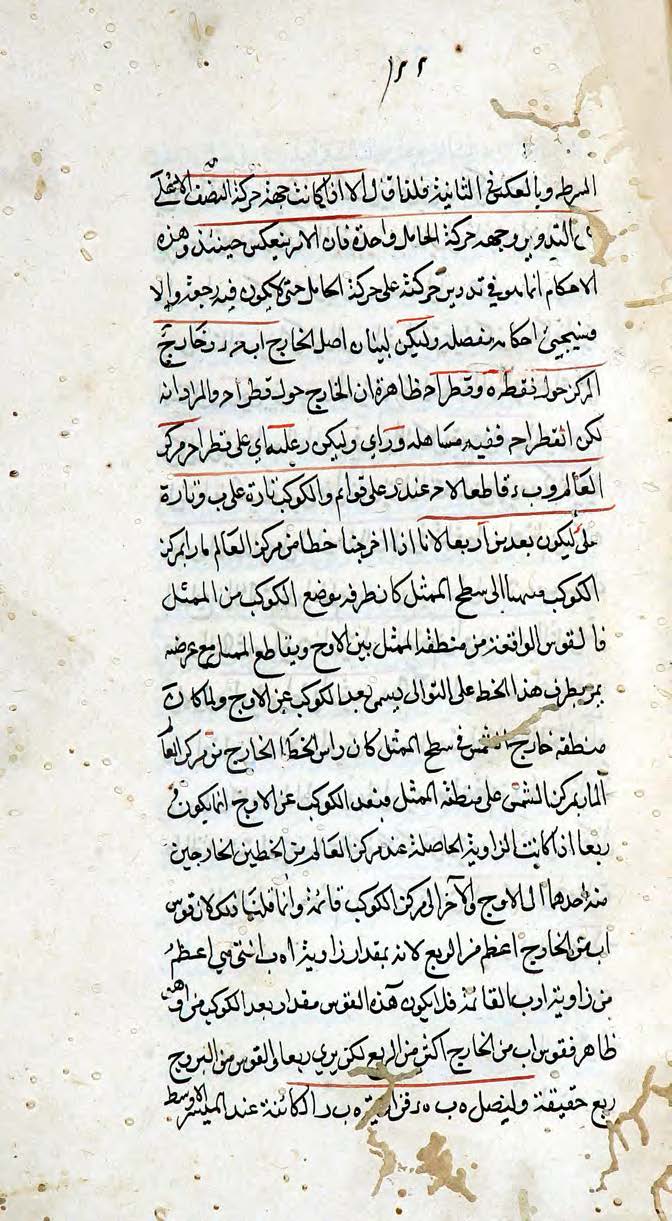 ١٢٢
السرطه وبالعكس فى الثانية فلذا قال الا اذا كانت جهة حركة النصف الاسفلى
من التدوير وجهه حركة الحامل واحدة فان الامر ينعكس حينئذ وهذه
الاحكام انما هو فى تدوير حركته على حركة الحامل حتى لا يكون فيه رجعة والا
فسيجئ احكامه مفصله وليكن لبيان اصل الخارج اب ه ر د خارج
المركز حول نقطة ه وقطر ا ح ظاهره ان الخارج حوله قطر ا ح والمراد انه
لكن ا نقطر ا ح ففيه مساهله وراى وليكن ر عليه اى على قطر ا ح مركز
العالم و ب ء قاطعا لا ح عند ر على قوائم والكوكب تارة على ب وتارة
على ليكون بعد من آ ربعا لانا اذا اخرجنا خطا من مركز العالم مارا بمركز
الكوكب منتهيا الى سطح الممثل كان طرفه موضع الكوكب من الممثل
فالقوس الواقعة من منطقة الممثل بين الاوج وتقاطع الممثل مع عرضه
يمر بطرف هذا الخط على التوالى يسمى بعد الكوكب عن الاوج ولما كان
منطقة خارج الشمس فى سطح الممثل كان راس الخط الخارج من مركز العا
المار بمركز الشمس على منطقة الممثل فبعد الكوكب عن الاوج انما يكون
ربعا اذا كانت الزاوية الحاصلة عند مركز العالم من الخطين الخارجين
منه احدهما الى الاوج والآخر الى مركز الكوكب قائمة وانما قلنا ذلك لان قوس
اب من الخارج اعظم من الربع لانه بمقدار زاوية ا ه ب التى هى اعظم
من زاوية ا ر ب القائمة فلا يكون هذه القوس مقدار بعد الكوكب من اوهى
ظاهر فقوس اب من الخارج اكثر من الربع لكن يرى ربعا والقوس من البروج
ربع حقيقة ولنصل ه ب ه د فزاوية ه ب ر الكائنة عند المسير الاوسط